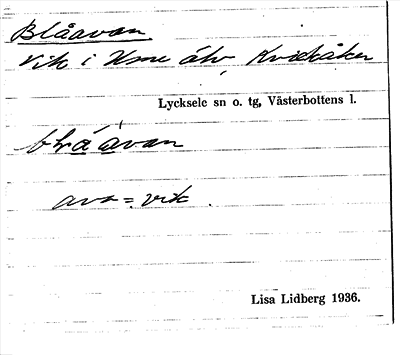 Blåavan
Vik i Ume älv, Kvickåker
Lycksele sn o. tg, Västerbottens l.
blåavan
ava = vik.
Lisa Lidberg 1936.